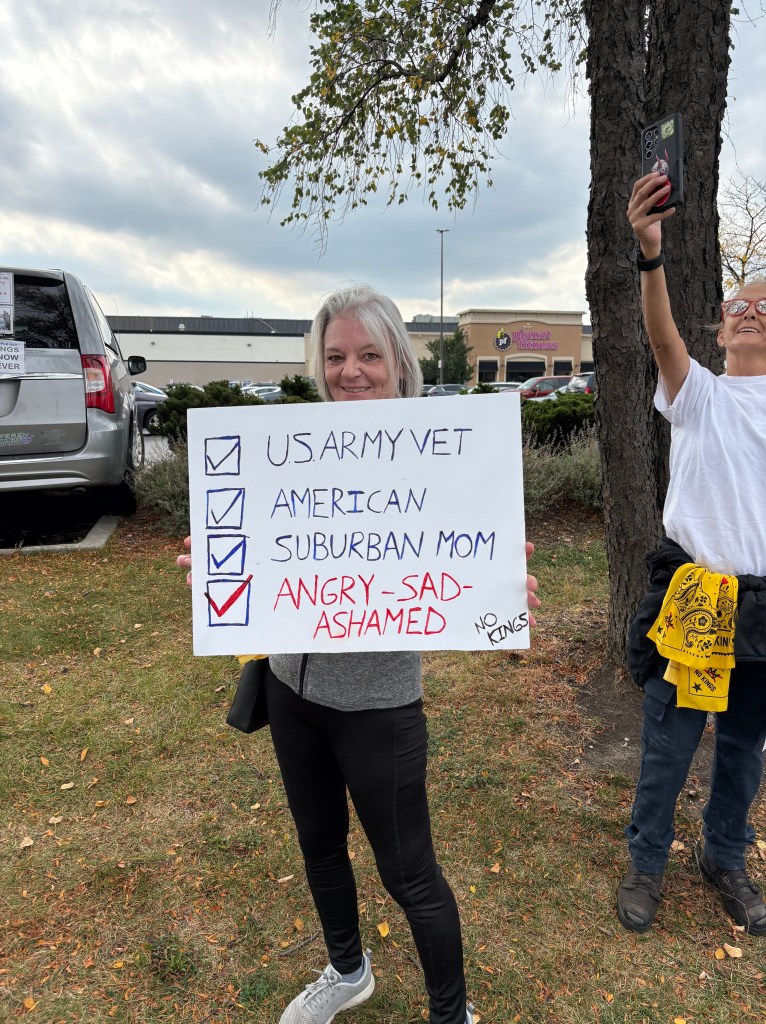 U.S. ARMY VET
AMERICAN
SUBURBAN MOM
ANGRY-SAD-
ASHAMED
NO
KINGS
planet
fitness
NGS
NOW
EVER
KIN
NO KINGS